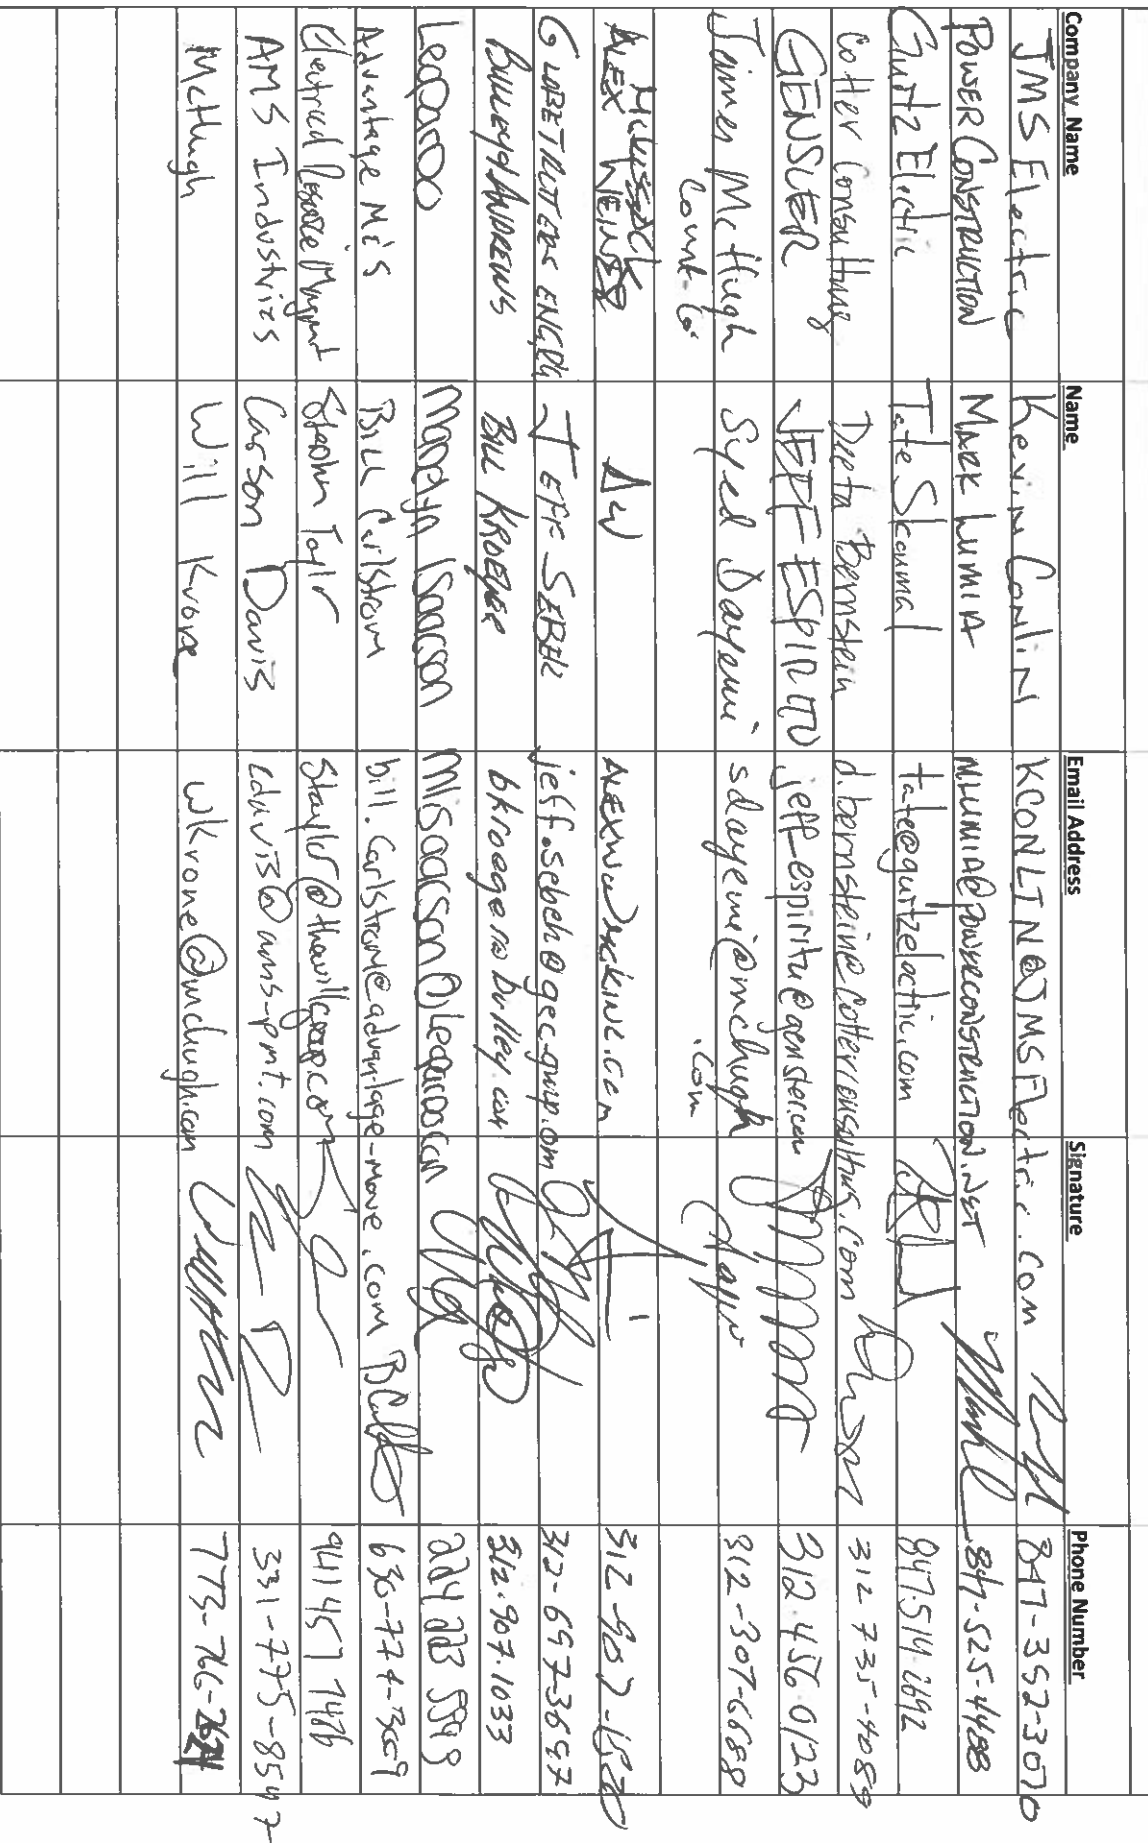 Company Name Name Email Address Signature Phone Number
JMS Electric Kevin Conlin KCONLIN@JMSElectric.com 847-352-3070
POWER CONSTRUCTION MARK LUMIA MLUMIA@POWERCONSTRUCTION.NET 847-525-4488
Gurtz Electric Tate Skoumal tate@gurtzelectric.com 847.514.2692
Cotter Consulting Dieta Bernstein d.bernstein@cotterconsulting.com 312 735-4089
GENSLER JEFF ESPIRITU jeff_espiritu@gensler.com 312.456.0123
James McHugh Syed Dayemi sdayemi@mchugh 312-307-6688
Const. Co. .com
ALEX WEISS AW
GLOBETROTTERS ENGRG JEFF SEBEK jeff.sebek@gec-group.com 312-697-3697
BULLEY & ANDREWS BILL KROEGER bkroeger@bulley.com 312.907.1033
Leopardo Madelyn Isaacson misaacson@leopardo.com 224 223 5548
Advantage M&S Bill Carlstrom bill.carlstrom@advantage-move.com
Electrical Resource Mngmt Stephn Taylr
AMS Industries Carson Davis cdavis@ams-pmt.com 331-775-8547
McHugh Will Krone wkrone@mchugh.com